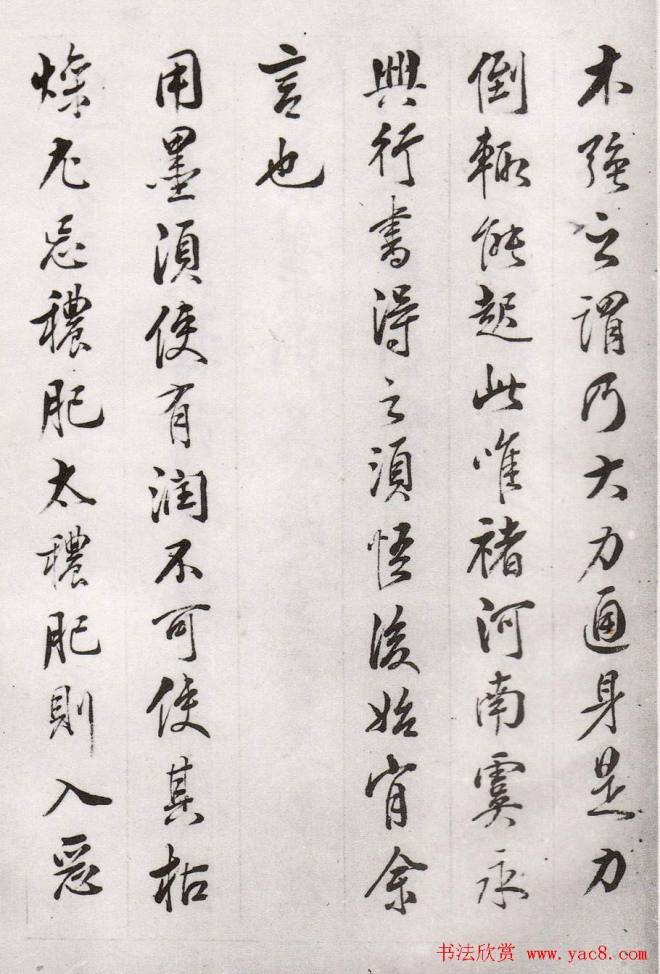 木強之謂乃大力通身是力
倒輒能起此唯褚河南虞永
興行書得之須悟後始肯余
言也
用墨須使有潤不可使其枯
燥尤忌穠肥太穠肥則入惡
书法欣赏 www.yac8.com